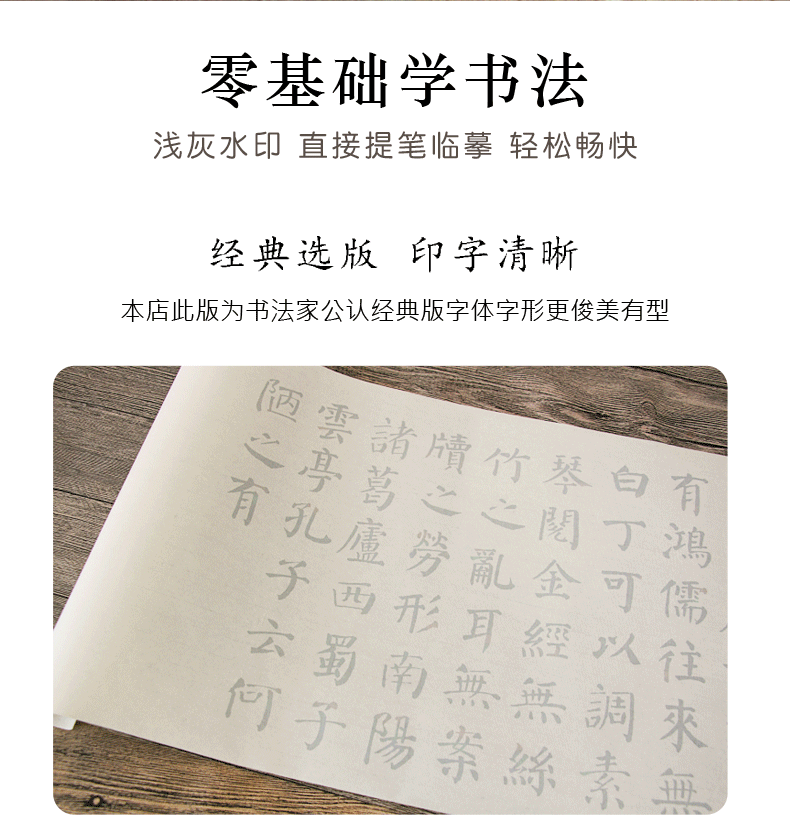 零基础学书法
浅灰水印 直接提笔临摹 轻松畅快
经典选版 印字清晰
本店此版为书法家公认经典版字体字形更俊美有型
有鴻儒往來無
白丁可以調素
琴閱金經無絲
竹之亂耳無案
牘之勞形南陽
諸葛廬西蜀子
雲亭孔子云何
陋之有